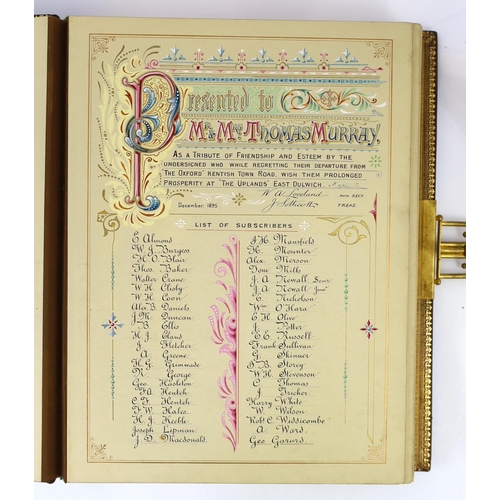 Presented to
Mr & Mrs Thomas Murray,
As a Tribute of Friendship and Esteem by the
undersigned who while regretting their departure from
The Oxford' Kentish Town Road, wish them prolonged
Prosperity at 'The Uplands' East Dulwich.
W. A. Loveland Hon. Secy.
December, 1895 Treas.
List of Subscribers
E Almond
W. J. Burgess
H. O. Blair
Thos. Baker
Walter Crane
W. H. Clisby
W. H. Coon
Alex B. Daniels
J. M. Duncan
B. Ellis
H. J. Eland
J. Fletcher
A Greene
H. G. Grimwade
R. George
Geo. Hasleton
F. A Hentch
C. F. Hentch
F. W. Hales
H. J. Keeble
Joseph Lipman
J. D. Macdonald
J. H. Mansfield
Mounter
Alex Merson
Tom Mills
J. A Newall Senr
J. A Newall Junr
E. Nicholson
Wm O'Hara
E H Olive
J. Potter
E C Russell
Frank Sullivan
G. Skinner
S B. Storey
W H. Stevenson
C Thomas
J Tricker
Harry White
W. J. Wilson
Robt C. Widdicombe
A Ward.
Geo Garord